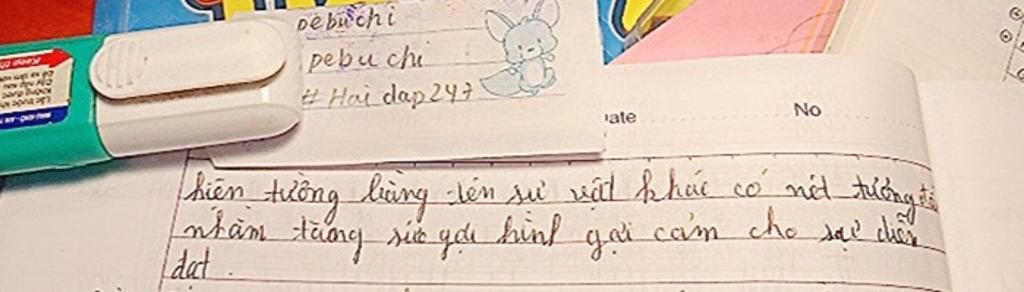 pebuchi
pebuchi
# Hoi dap 247
No
hiện tường bằng tên sự vật khác có nét tướng
nhằm tăng sức gợi hình gợi cảm cho sự diễn
đạt.